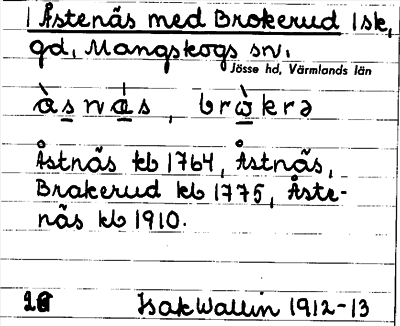 1 Åstenäs med Brokerud 1 sk,
gd, Mangskogs sn.
Jösse hd, Värmlands län
àsnás, bròkrə
Åstnäs kb 1764, Åstnäs,
Brakerud kb 1775, Åste-
näs kb 1910.
Isak Wallin 1912-13